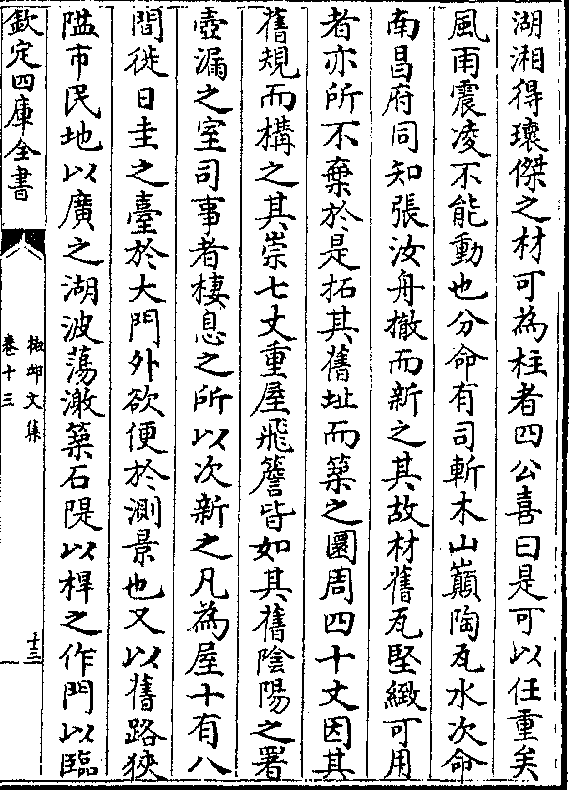 湖湘得瓌傑之材可為柱者四公喜曰是可以任重矣
風雨震凌不能動也分命有司斬木山巔陶瓦水次命
南昌府同知張汝舟撤而新之其故材舊瓦堅緻可用
者亦所不棄於是拓其舊址而築之圜周四十丈因其
舊規而構之其崇七丈重屋飛簷皆如其舊陰陽之署
壺漏之室司事者棲息之所以次新之凡為屋十有八
間徙日圭之臺於大門外欲便於測景也又以舊路狹
隘市民地以廣之湖波蕩潄築石隄以桿之作門以臨
欽定四庫全書
椒邱文集
卷十三
十三